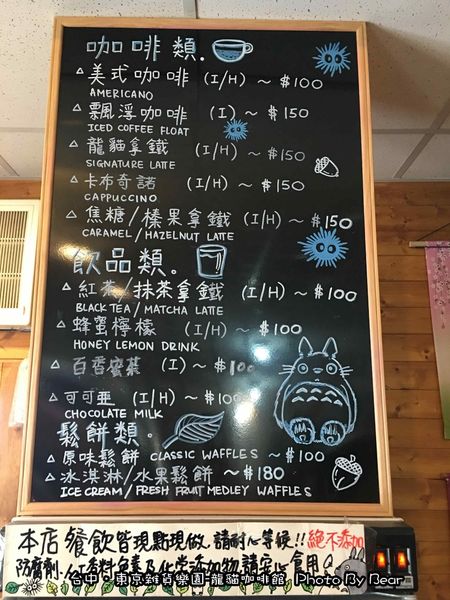 咖啡類.
△美式咖啡 (I/H) ~ $100
AMERICANO
△飄浮咖啡 (I) ~ $150
ICED COFFEE FLOAT
△龍貓拿鐵 (I/H) ~ $150
SIGNATURE LATTE
△卡布奇諾 (I/H) ~ $150
CAPPUCCINO
△焦糖/榛果拿鐵 (I/H) ~ $150
CARAMEL/HAZELNUT LATTE
飲品類.
△紅茶/抹茶拿鐵 (I/H) ~ $100
BLACK TEA / MATCHA LATTE
△蜂蜜檸檬 (I/H) ~ $100
HONEY LEMON DRINK
△百香蜜茶 (I) ~ $100
△可可亞 (I/H) ~ $100
CHOCOLATE MILK
鬆餅類.
△原味鬆餅 CLASSIC WAFFLES ~ $100
△冰淇淋/水果鬆餅 ~ $180
ICE CREAM / FRESH FRUIT MEDLEY WAFFLES
本店餐飲皆現點現做.請耐心等候!!絕不添加
防腐劑.人工香料色素及化學添加物.請安心食用
台中。東京雜貨樂園-龍貓咖啡館 Photo By Bear